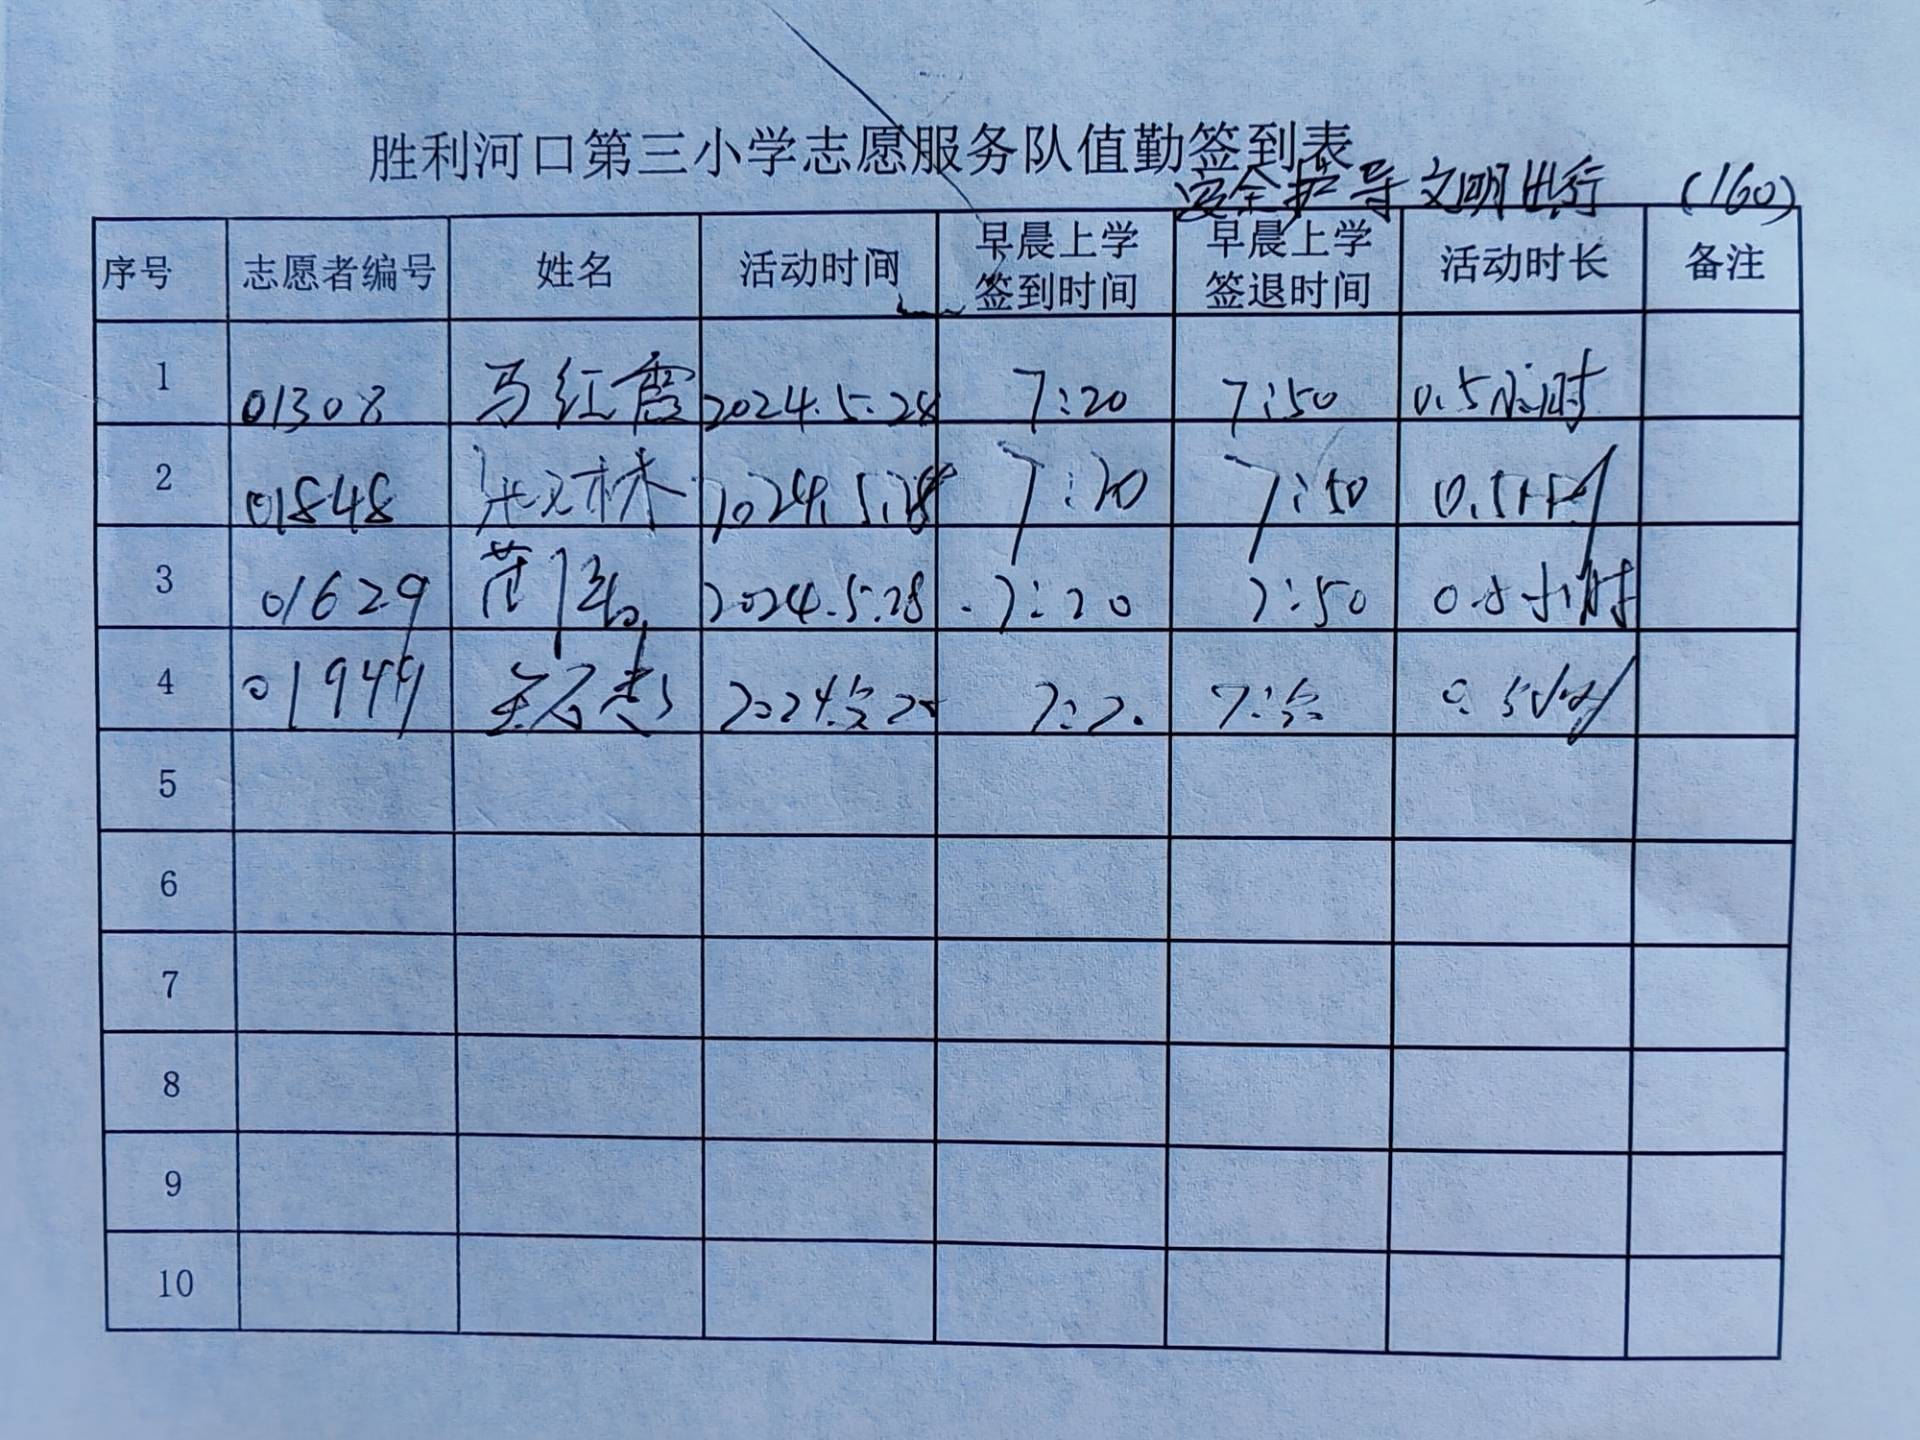 胜利河口第三小学志愿服务队值勤签到表
安全护导 文明出行 (160)
序号 志愿者编号 姓名 活动时间 早晨上学签到时间 早晨上学签退时间 活动时长 备注
1 01308 马红霞 2024.5.28 7:20 7:50 0.5小时
2 01848 2024.5.28 7:20 7:50 0.5小时
3 01629 2024.5.28 7:20 7:50 0.5小时
4 01949 2024.5.28 7:20 7:50 0.5小时
5
6
7
8
9
10